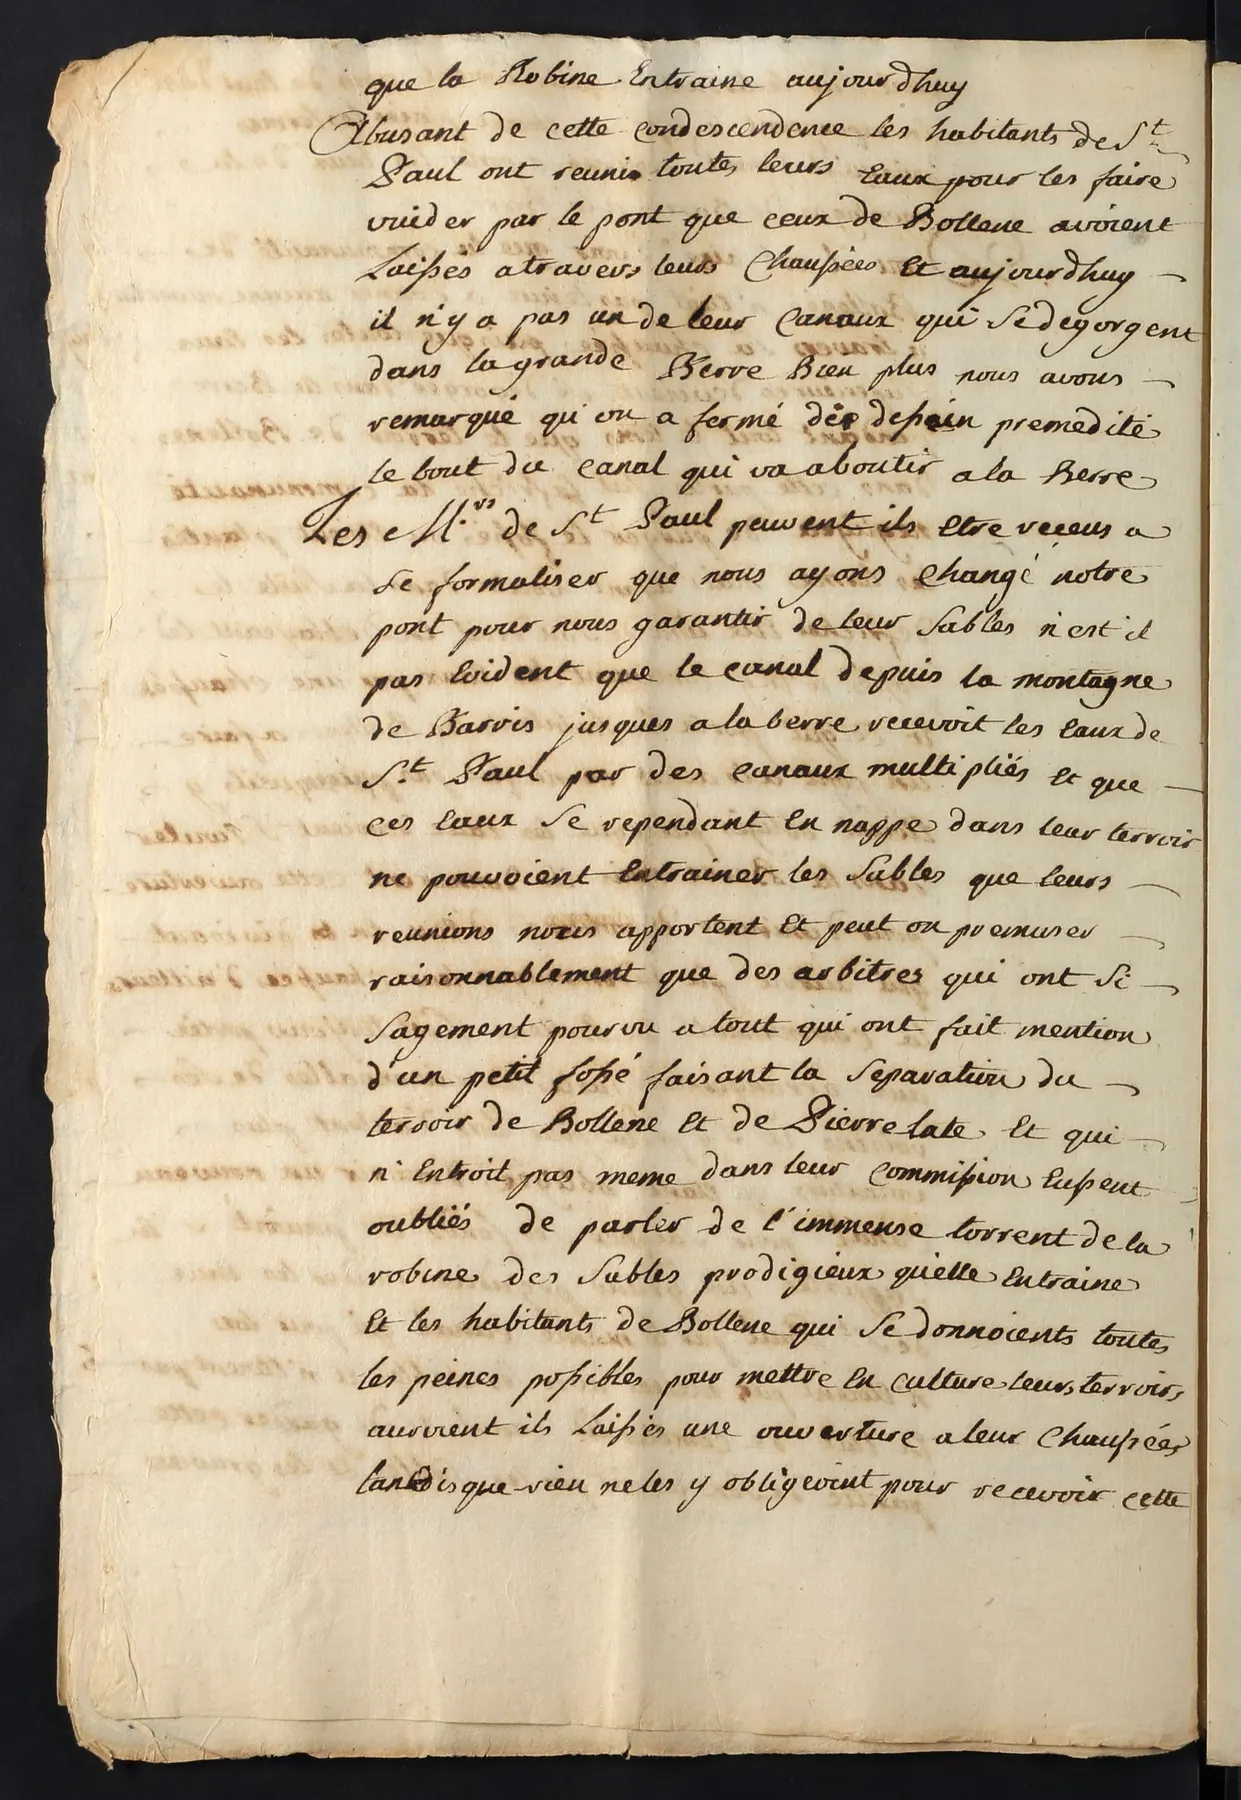 que la Robine Entraine aujourdhuy
Abusant de cette condescendence les habitants de St
Paul ont reunis toutes leurs Eaux pour les faire
vuider par le pont que ceux de Bollene avoient
Laissés atravers leurs Chaussées Et aujourdhuy
il n'y a pas un de leur Canaux qui se degorgent
dans la grande Berre Bien plus nous avons
remarqué qu'on a fermé de dessein premedité
le bout du canal qui va aboutir a la Berre
Les M.rs de St Paul peuvent ils Etre receus a
se formaliser que nous ayons changé notre
pont pour nous garantir de leur sables n'est il
pas Evident que le canal depuis la montagne
de Barris jusques a la berre recevoit les Eaux de
St Paul par des canaux multipliés et que
ces Eaux se rependant En nappe dans leur terroir
ne pouvoient Entrainer les Sables que leurs
reunions nous apportent Et peut on presumer
raisonnablement que des arbitres qui ont si
sagement pourvu a tout qui ont fait mention
d'un petit fossé faisant la separation du
terroir de Bollene Et de Pierrelate Et qui
n'Entroit pas meme dans leur Commission Eussent
oubliés de parler de l'immense torrent de la
robine des Sables prodigieux qu'elle Entraine
Et les habitants de Bollene qui se donnoients toutes
les peines possibles pour mettre En culture leurs terroirs
auroient ils Laissés une ouverture a leur Chaussées
tandis que rien ne les y obligeoint pour recevoir cette